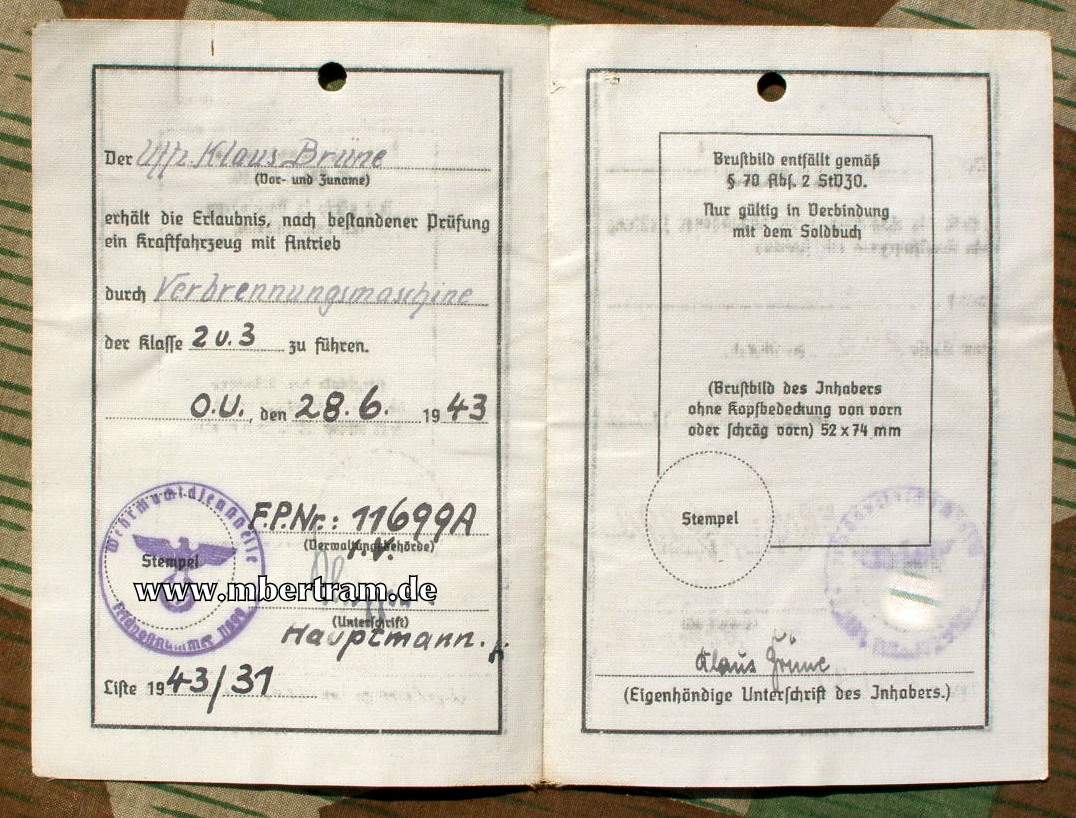 Der Uffz. Klaus Brüne
(Vor- und Zuname)
erhält die Erlaubnis, nach bestandener Prüfung
ein Kraftfahrzeug mit Antrieb
durch Verbrennungsmaschine
der Klasse 2 u. 3 zu führen.
O.U., den 28.6. 1943
Wehrmachtdienststelle
Stempel
Feldpostnummer 11699
F.P.Nr.: 11699A
(Verwaltungsbehörde)
www.mbertram.de
(Unterschrift)
Hauptmann.
Liste 1943/31
Brustbild entfällt gemäß
§ 70 Abs. 2 StVZO.
Nur gültig in Verbindung
mit dem Soldbuch
(Brustbild des Inhabers
ohne Kopfbedeckung von vorn
oder schräg vorn) 52 x 74 mm
Stempel
Klaus Brüne
(Eigenhändige Unterschrift des Inhabers.)